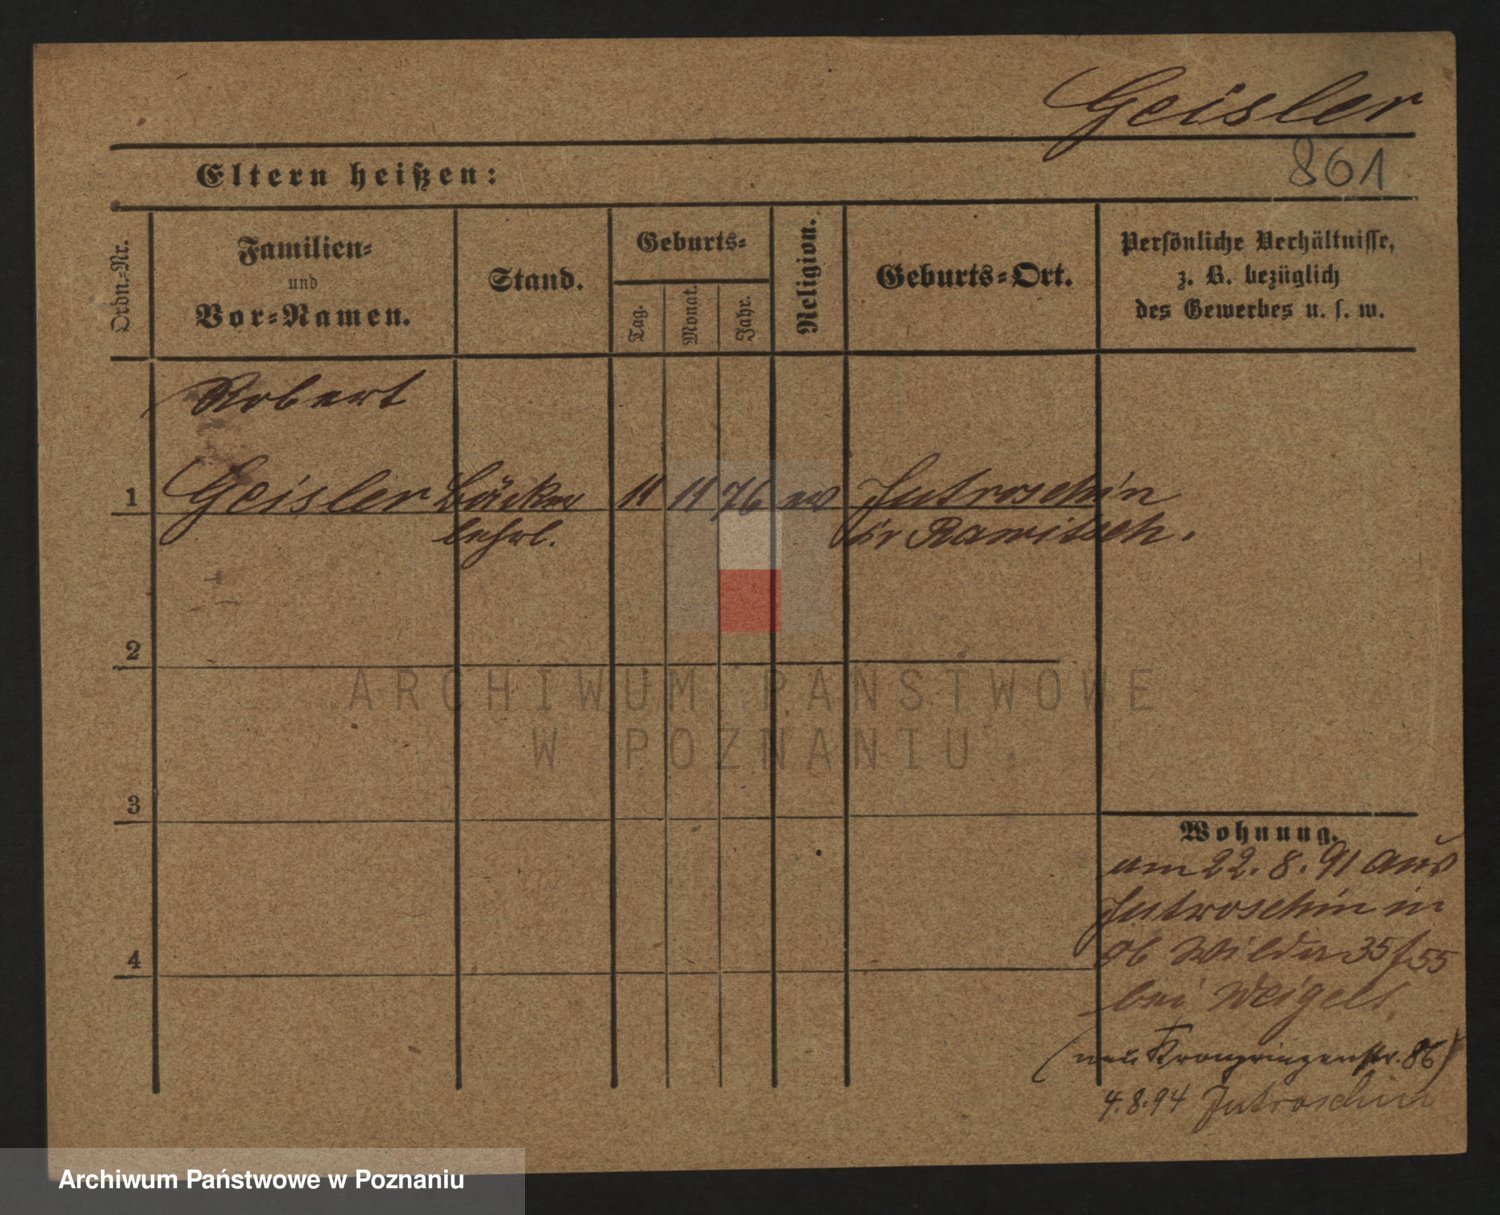 Geisler
861
Eltern heißen:
Ordn.-Nr.
Familien-
und
Vor-Namen.
Stand.
Geburts-
Tag.
Monat.
Jahr.
Religion.
Geburts-Ort.
Persönliche Verhältnisse,
z. B. bezüglich
des Gewerbes u. s. w.
Robert
1 Geisler Bäcker 11 11 76 ev Jutroschin
lehrl. Kr Rawitsch.
2
3
4
Wohnung.
am 22. 8. 91 aus
Jutroschin in
Ob Wilda 35/55
bei Weigelt,
(neu Kronprinzenstr. 86)
4.8.94 Jutroschin
ARCHIWUM PAŃSTWOWE
W POZNANIU
Archiwum Państwowe w Poznaniu